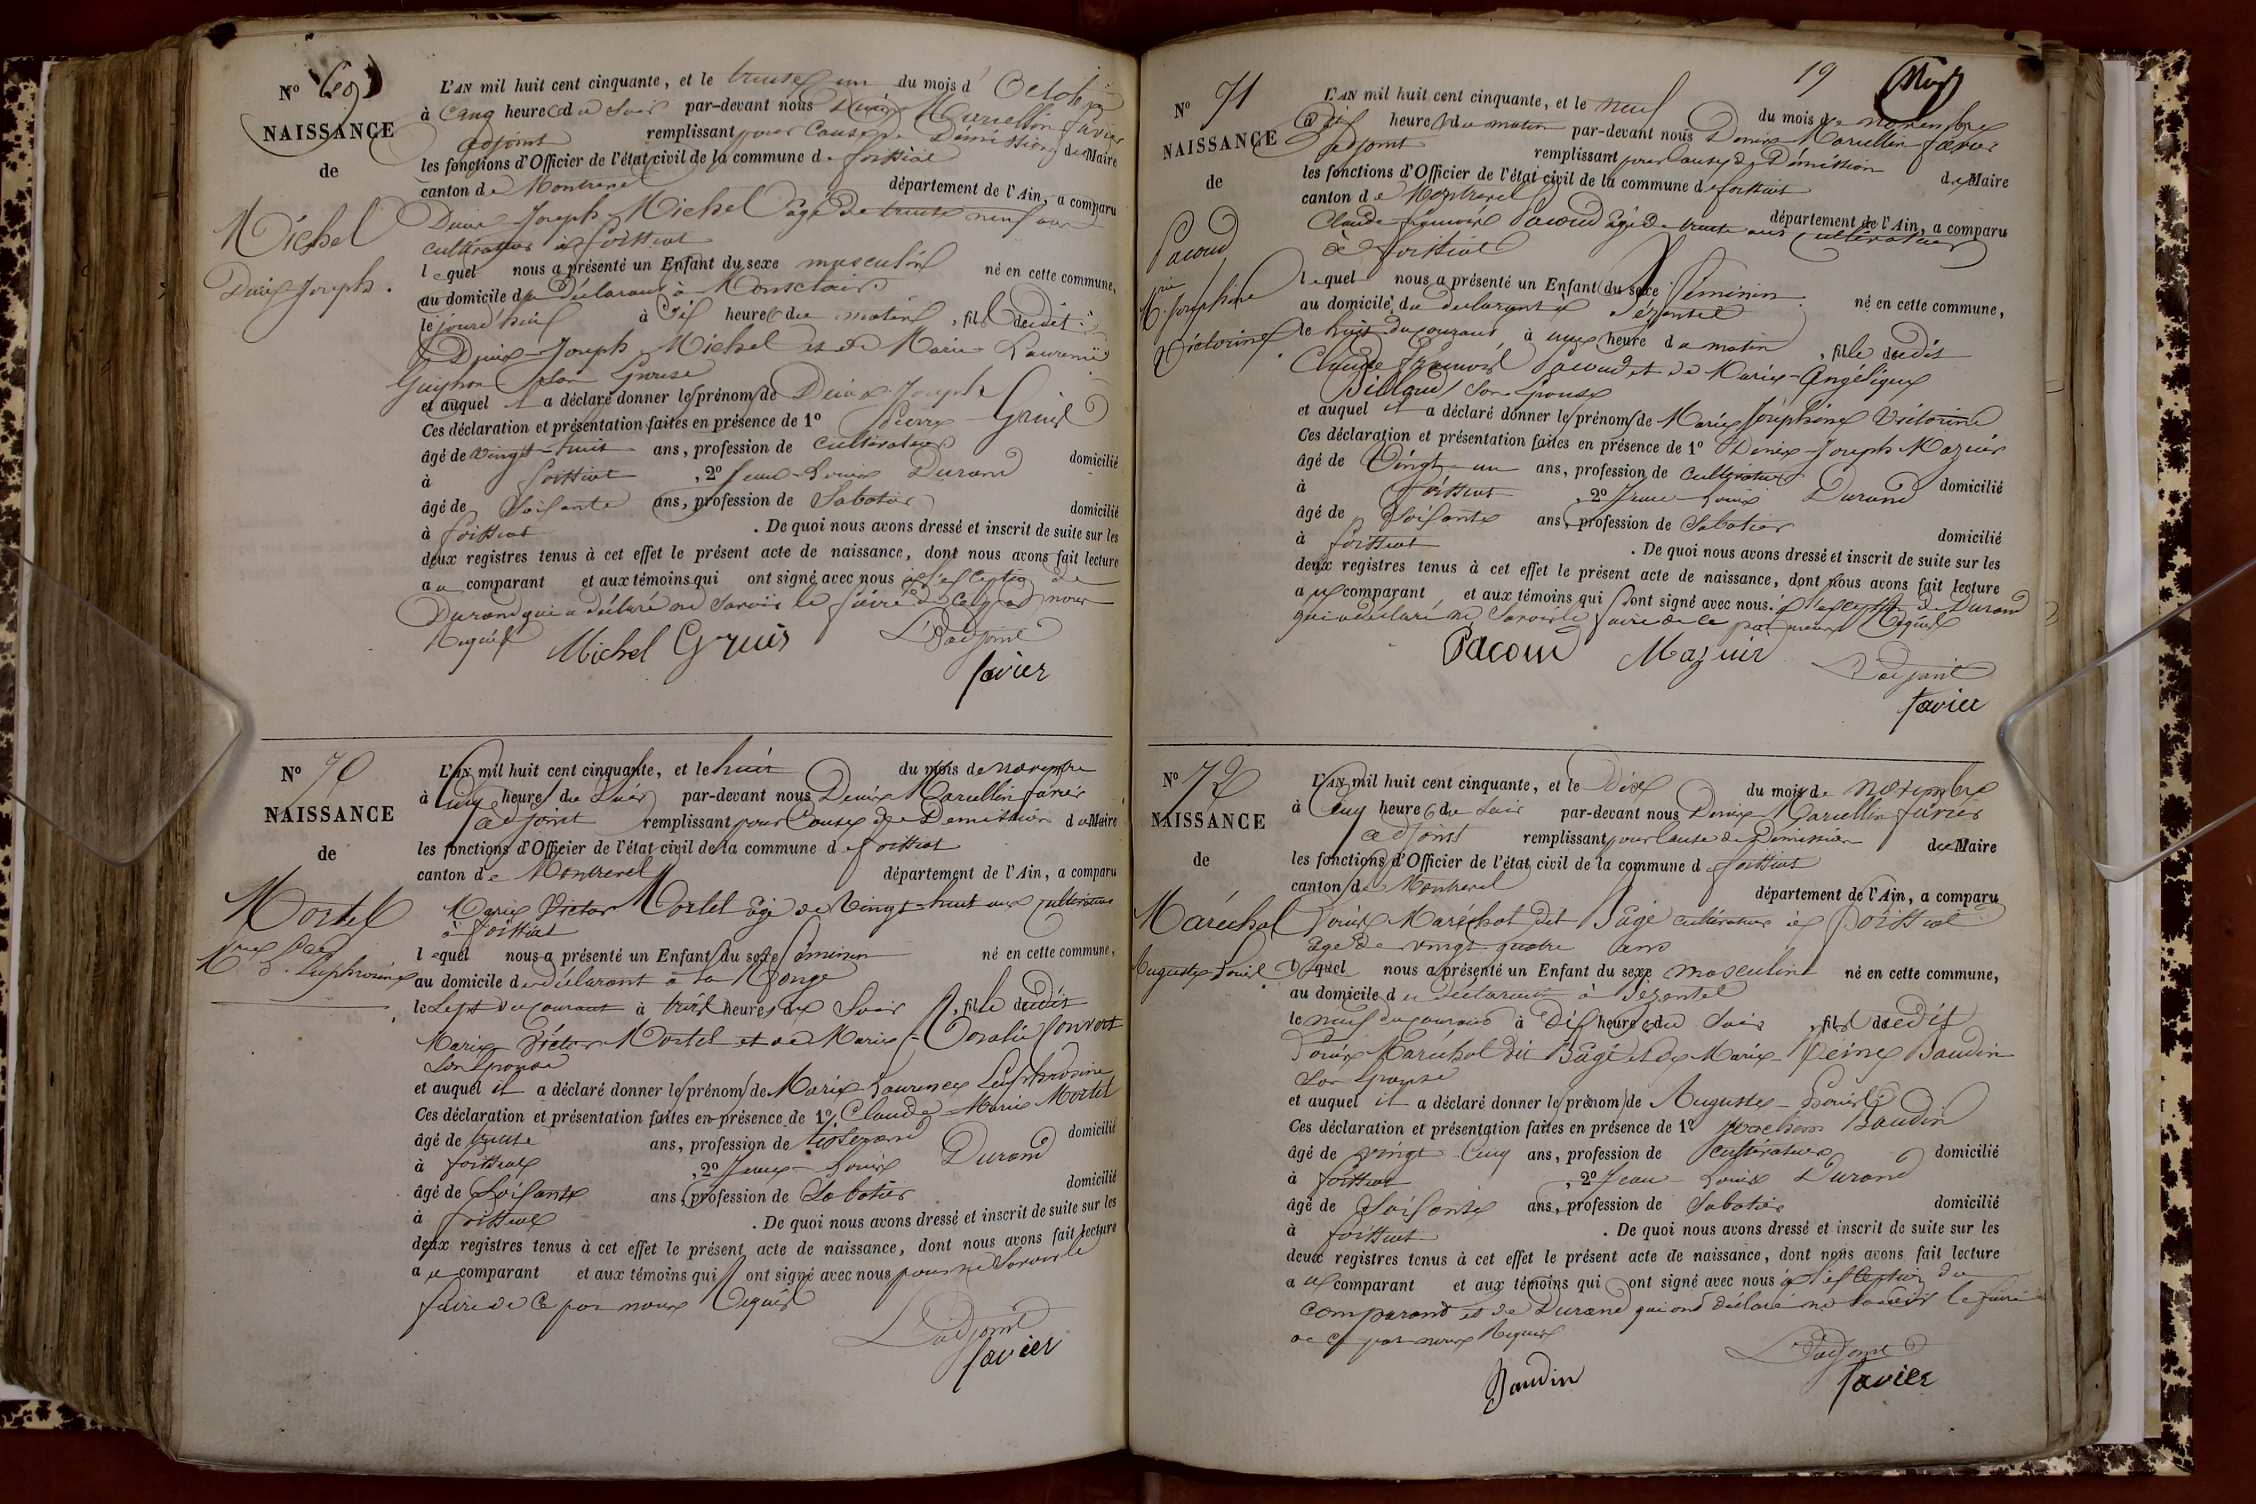 N° 69
NAISSANCE
de
Michel
Denis Joseph.
L'AN mil huit cent cinquante, et le trente un du mois d'Octobre
à Cinq heures du Soir par-devant nous Denis Marcellin Favier
adjoint remplissant pour Cause de Démission du Maire
les fonctions d'Officier de l'état civil de la commune de foissiat
canton de Montrevel département de l'Ain, a comparu
Denis Joseph Michel âgé de trente neuf ans
cultivateur à foissiat
lequel nous a présenté un Enfant du sexe masculin né en cette commune,
au domicile du déclarant à Montclair
le jourd'hui à dix heures du matin, fils dudit
Denis Joseph Michel et de Marie Laurence
Guyhon Son Epouse
et auquel il a déclaré donner les prénoms de Denis Joseph
Ces déclaration et présentation faites en présence de 1° Pierre Gruis
âgé de vingt-huit ans, profession de cultivateur domicilié
à foissiat, 2° Jean-Louis Durand
âgé de Soixante ans, profession de Sabotier domicilié
à foissiat. De quoi nous avons dressé et inscrit de suite sur les
deux registres tenus à cet effet le présent acte de naissance, dont nous avons fait lecture
au comparant et aux témoins qui ont signé avec nous à l'exception de
Durand qui a déclaré ne Savoir le faire de ce nous
Requis
Michel Gruis L'adjoint
Favier
N° 70
NAISSANCE
de
Mortel
Mie Lce Euphrosine
L'AN mil huit cent cinquante, et le huit du mois de novembre
à Cinq heures du Soir par-devant nous Denis Marcellin Favier
adjoint remplissant pour Cause de Démission du Maire
les fonctions d'Officier de l'état civil de la commune de foissiat
canton de Montrevel département de l'Ain, a comparu
Marie Victor Mortel âgé de Vingt-huit ans cultivateur
à foissiat
lequel nous a présenté un Enfant du sexe féminin né en cette commune,
au domicile du déclarant à la Ronge
le Sept du courant à trois heures du Soir, fille dudit
Marie Victor Mortel et de Marie Rosalie Convert
Son Epouse
et auquel il a déclaré donner les prénoms de Marie Laurence Euphrosine
Ces déclaration et présentation faites en présence de 1° Claude Marie Mortel
âgé de trente ans, profession de tisserand domicilié
à foissiat, 2° Jean-Louis Durand
âgé de Soixante ans, profession de Sabotier domicilié
à foissiat. De quoi nous avons dressé et inscrit de suite sur les
deux registres tenus à cet effet le présent acte de naissance, dont nous avons fait lecture
au comparant et aux témoins qui ont signé avec nous pour ne Savoir le
faire de ce par nous Requis
L'adjoint
Favier
19
N° 71
NAISSANCE
de
Pacoud
Mie Josephine
Victorine
L'AN mil huit cent cinquante, et le neuf du mois de novembre
à dix heures du matin par-devant nous Denis Marcellin Favier
adjoint remplissant pour Cause de Démission du Maire
les fonctions d'Officier de l'état civil de la commune de foissiat
canton de Montrevel département de l'Ain, a comparu
Claude François Pacoud âgé de trente ans cultivateur
à foissiat
lequel nous a présenté un Enfant du sexe féminin né en cette commune,
au domicile du déclarant à Pezentel
le huit du courant à une heure du matin, fille dudit
Claude François Pacoud et de Marie-Angélique
Son Epouse
et auquel il a déclaré donner les prénoms de Marie Joséphine Victorine
Ces déclaration et présentation faites en présence de 1° Denis-Joseph Mazuir
âgé de Vingt-un ans, profession de cultivateur domicilié
à foissiat, 2° Jean-Louis Durand
âgé de Soixante ans, profession de Sabotier domicilié
à foissiat. De quoi nous avons dressé et inscrit de suite sur les
deux registres tenus à cet effet le présent acte de naissance, dont nous avons fait lecture
au comparant et aux témoins qui ont signé avec nous à l'exception de Durand
qui a déclaré ne Savoir le faire de ce par nous Requis
Pacoud Mazuir L'adjoint
Favier
N° 72
NAISSANCE
de
Maréchal
Auguste Louis
L'AN mil huit cent cinquante, et le Dix du mois de novembre
à Cinq heures du Soir par-devant nous Denis Marcellin Favier
adjoint remplissant pour Cause de Démission du Maire
les fonctions d'Officier de l'état civil de la commune de foissiat
canton de Montrevel département de l'Ain, a comparu
Louis Maréchal dit Bâgé cultivateur à foissiat
âgé de vingt quatre ans
lequel nous a présenté un Enfant du sexe masculin né en cette commune,
au domicile du déclarant à Pezentel
le neuf du courant à Dix heures du Soir, fils dudit
Louis Maréchal dit Bâgé et de Marie Reine Baudin
Son Epouse
et auquel il a déclaré donner les prénoms de Auguste-Louis
Ces déclaration et présentation faites en présence de 1° Joachim Baudin
âgé de vingt Cinq ans, profession de cultivateur domicilié
à foissiat, 2° Jean Louis Durand
âgé de Soixante ans, profession de Sabotier domicilié
à foissiat. De quoi nous avons dressé et inscrit de suite sur les
deux registres tenus à cet effet le présent acte de naissance, dont nous avons fait lecture
au comparant et aux témoins qui ont signé avec nous à l'exception du
comparant et de Durand qui ont déclaré ne Savoir le faire
de ce par nous Requis
Baudin L'adjoint
Favier